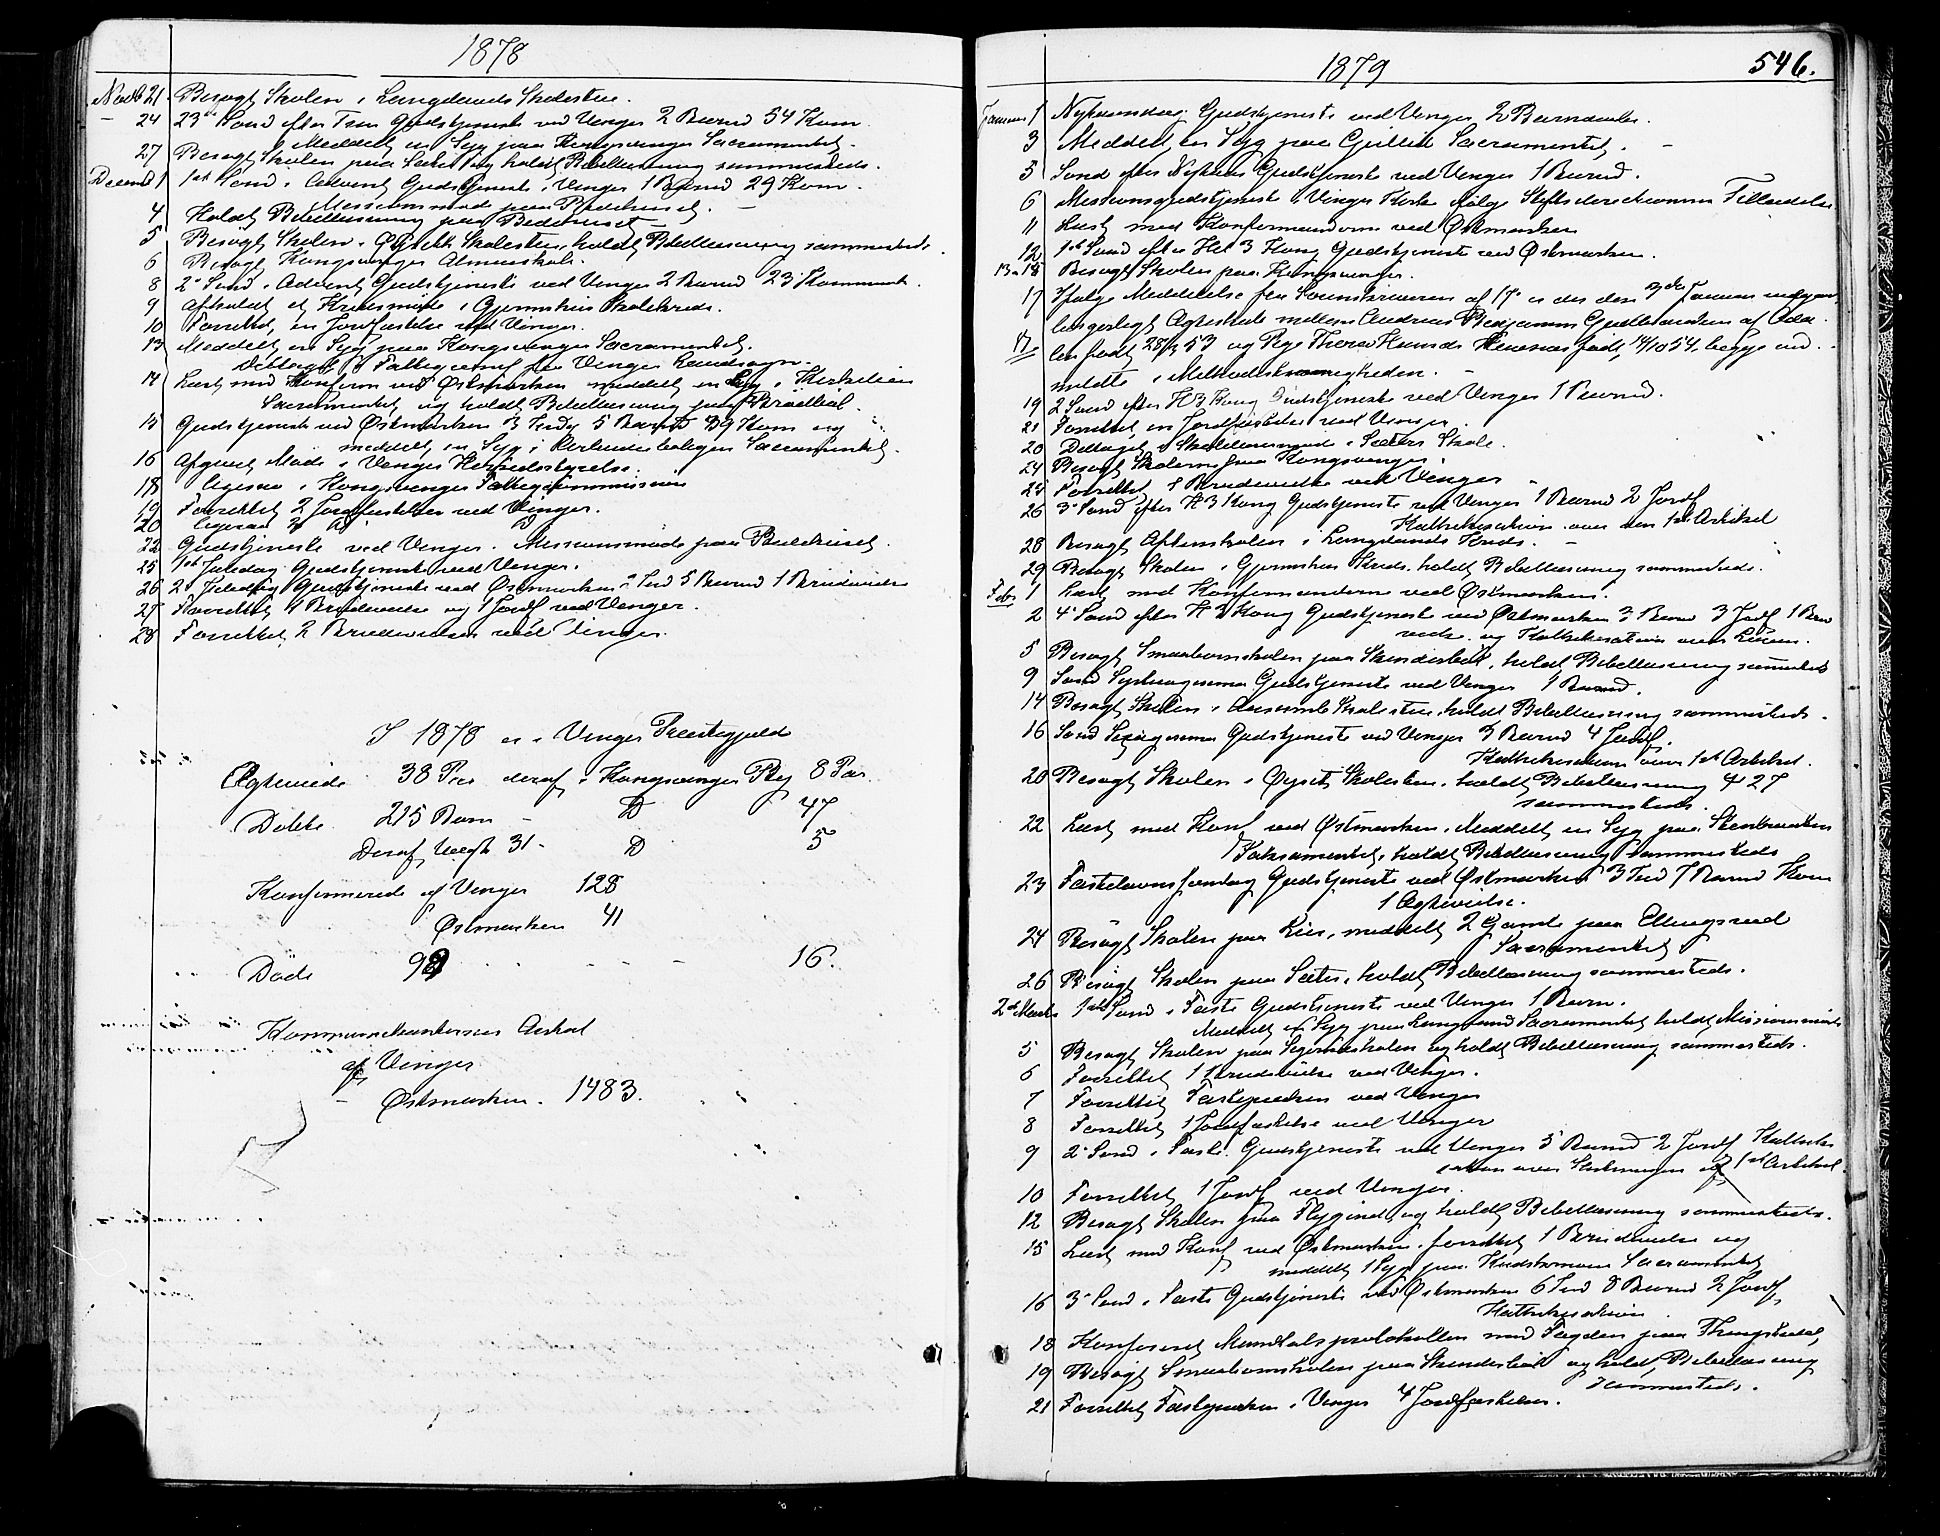 1878
Novb 21 Besøgt Skolen i Langelands Skolestue.
- 24 23de Sønd efter Trin Gudstjeneste ved Vinger 2 Barnd 54 Kom
Meddelt en Syg paa Kongsvinger Sacramentet.
27 Besøgt Skolen paa Sæter og holdt Bibellæsning sammesteds.
Decemb 1 1ste Sønd i Advent Gudstjeneste i Vinger 1 Barnd 29 Kom.
Missionsmøde paa Bedehuset.
4 Holdt Bibellæsning paa Bedehuset
5 Besøgt Skolen i Øiset Skolestue, holdt Bibellæsning sammesteds
6 Besøgt Kongsvinger Almueskole.
8 2 Sønd i Advent Gudstjeneste ved Vinger 2 Barnd 23 Kommunik.
9 Afholdt et Kredsmøde i Gjemshus Skolekreds.
10 Forrettet en Jordfæstelse ved Vinger.
13 Meddelt en Syg paa Kongsvinger Sacramentet.
Deltaget i Fattigcomm for Vinger Landsogn.
14 Læst med Konfirm ved Østmarken meddelt en Syg i
Sacramentet, og holdt Bibellæsning paa
15 Gudstjeneste ved Østmarken 3 5 Barnd 49 Kom og
meddelt en Syg i Sacramentet.
16 Afgivet Møde i Vinger Herredsstyrelse.
18 ligesaa i Kongsvinger Fattigcommission
19 Forrettet 2 Jordfæstelser ved Vinger.
20 ligesaa 3 D D
22 Gudstjeneste ved Vinger. Missionsmøde paa Bedehuset.
25 1st Juledag Gudstjeneste ved Vinger.
26 2 Juledag Gudstjeneste ved Østmarken 2 Ind 5 Barnd 1 Brudevielse
27 Forrettet 1 Brudevielse og 1 Jordf ved Vinger.
28 Forrettet 2 Brudevielser ved Vinger.
I 1878 er i Vinger Præstegjeld
Ægteviede 38 Par deraf i Kongsvinger By 8 Par
Døbte 215 Børn - D 47
Deraf Uægte 31 - D 5
Konfirmerede af Vinger 128
Østmarken 41
Døde 98 - - - 16.
Kommunikanternes Antal
af Vinger
- Østmarken. 1483.
1879
546.
Januar 1 Nytaarsdag Gudstjeneste ved Vinger 2 Barndaabe.
3 Meddelt en Syg paa Sacramentet.
5 Sønd efter Nytaar Gudstjeneste ved Vinger 1 Barnd.
6 Missionsgudstjeneste i Vinger Kirke ifølge Stiftsdirectionens Tilladelse
11 Læst med Konfirmanderne ved Østmarken
12 1st Sønd efter Hel 3 Kong Gudstjeneste ved Østmarken.
13-15 Besøgt Skolen paa Kongsvinger.
17 Ifølge Meddelelse fra Sorenskriveren af 17 er der den Januar indgaaet
borgerligt Ægteskab mellem Andreas Benjamin Gudbrandsen af Oda-
len født 28/ 53 og Pige Thea født 14/10 54, begge ud-
meldte i Methodistmenigheden.
19 2 Sønd efter H 3 Kong Gudstjeneste ved Vinger 1 Barnd.
21 Forrettet en Jordfæstelse ved Vinger.
20 Deltaget i Skolelærermøde i Sæters Skole.
24 Besøgt Skolerne paa Kongsvinger.
25 Forrettet 1 Brudevielse ved Vinger
26 3 Sønd efter H 3 Kong Gudstjeneste ved Vinger 1 Barnd 2 Jordf
Kathekisation over den 1st Artikel
28 Besøgt Aftenskolen i Langelands Kreds.
29 Besøgt Skolen i Gjemshus Kreds. holdt Bibellæsning sammesteds.
Feb 1 Læst med Konfirmanderne ved Østmarken.
2 4 Sønd efter H 3 Kong Gudstjeneste ved Østmarken 3 Barnd 3 Jordf 1 Brude
vielse og Kathekisation over Loven.
5 Besøgt Smaabørnskolen paa holdt Bibellæsning sammesteds
9 Sønd Septuagesima Gudstjeneste ved Vinger 1 Barnd.
14 Besøgt Skolen i Skolestue, holdt Bibellæsning sammesteds.
16 Sønd Sexagesima Gudstjeneste ved Vinger 3 Barnd 4 Jordf.
Kathekisation over 1st Artikel.
20 Besøgt Skolen i Øiset Skolestue, holdt Bibellæsning
sammesteds.
22 Læst med Konf ved Østmarken. Meddelt en Syg paa
Saksamentet, holdt Bibellæsning sammesteds
23 Fastelavnssøndag Gudstjeneste ved Østmarken 3 Ind 7 Barnd Kom
1 Ægtevielse.
24 Besøgt Skolen paa Lier, meddelt 2 Gamle paa Ellingsrud
Sacramentet
26 Besøgt Skolen paa Sæter, holdt Bibellæsning sammesteds.
2d Marts 1st Sønd i Faste Gudstjeneste ved Vinger 1 Barn.
Meddelt en Syg paa Langeland Sacramentet, holdt Missionsmøde
5 Besøgt Skolen paa og holdt Bibellæsning sammesteds.
6 Forrettet 1 Brudevielse ved Vinger.
7 Forrettet Fasteprædken ved Vinger
8 Forrettet 1 Jordfæstelse ved Vinger
9 2 Sønd i Faste. Gudstjeneste ved Vinger 5 Barnd 2 Jordf Katheki-
sation over Slutningen af 1st Artikel.
10 Forrettet 1 Jordf ved Vinger.
12 Besøgt Skolen paa Flygind, og holdt Bibellæsning sammesteds.
15 Læst med Konf ved Østmarken, forrettet 1 Brudevielse og
meddelt 1 Syg paa Sacramentet
16 3 Sønd i Faste Gudstjeneste ved Østmarken 6 Ind 8 Barnd 2 Jordf,
Kathekisation
18 Konfereret Mandtalsprotokollen med Fogden paa
19 Besøgt Smaabørnskolen paa og holdt Bibellæsning
sammesteds.
21 Forrettet Fasteprædken i Vinger 4 Jordfæstelser.